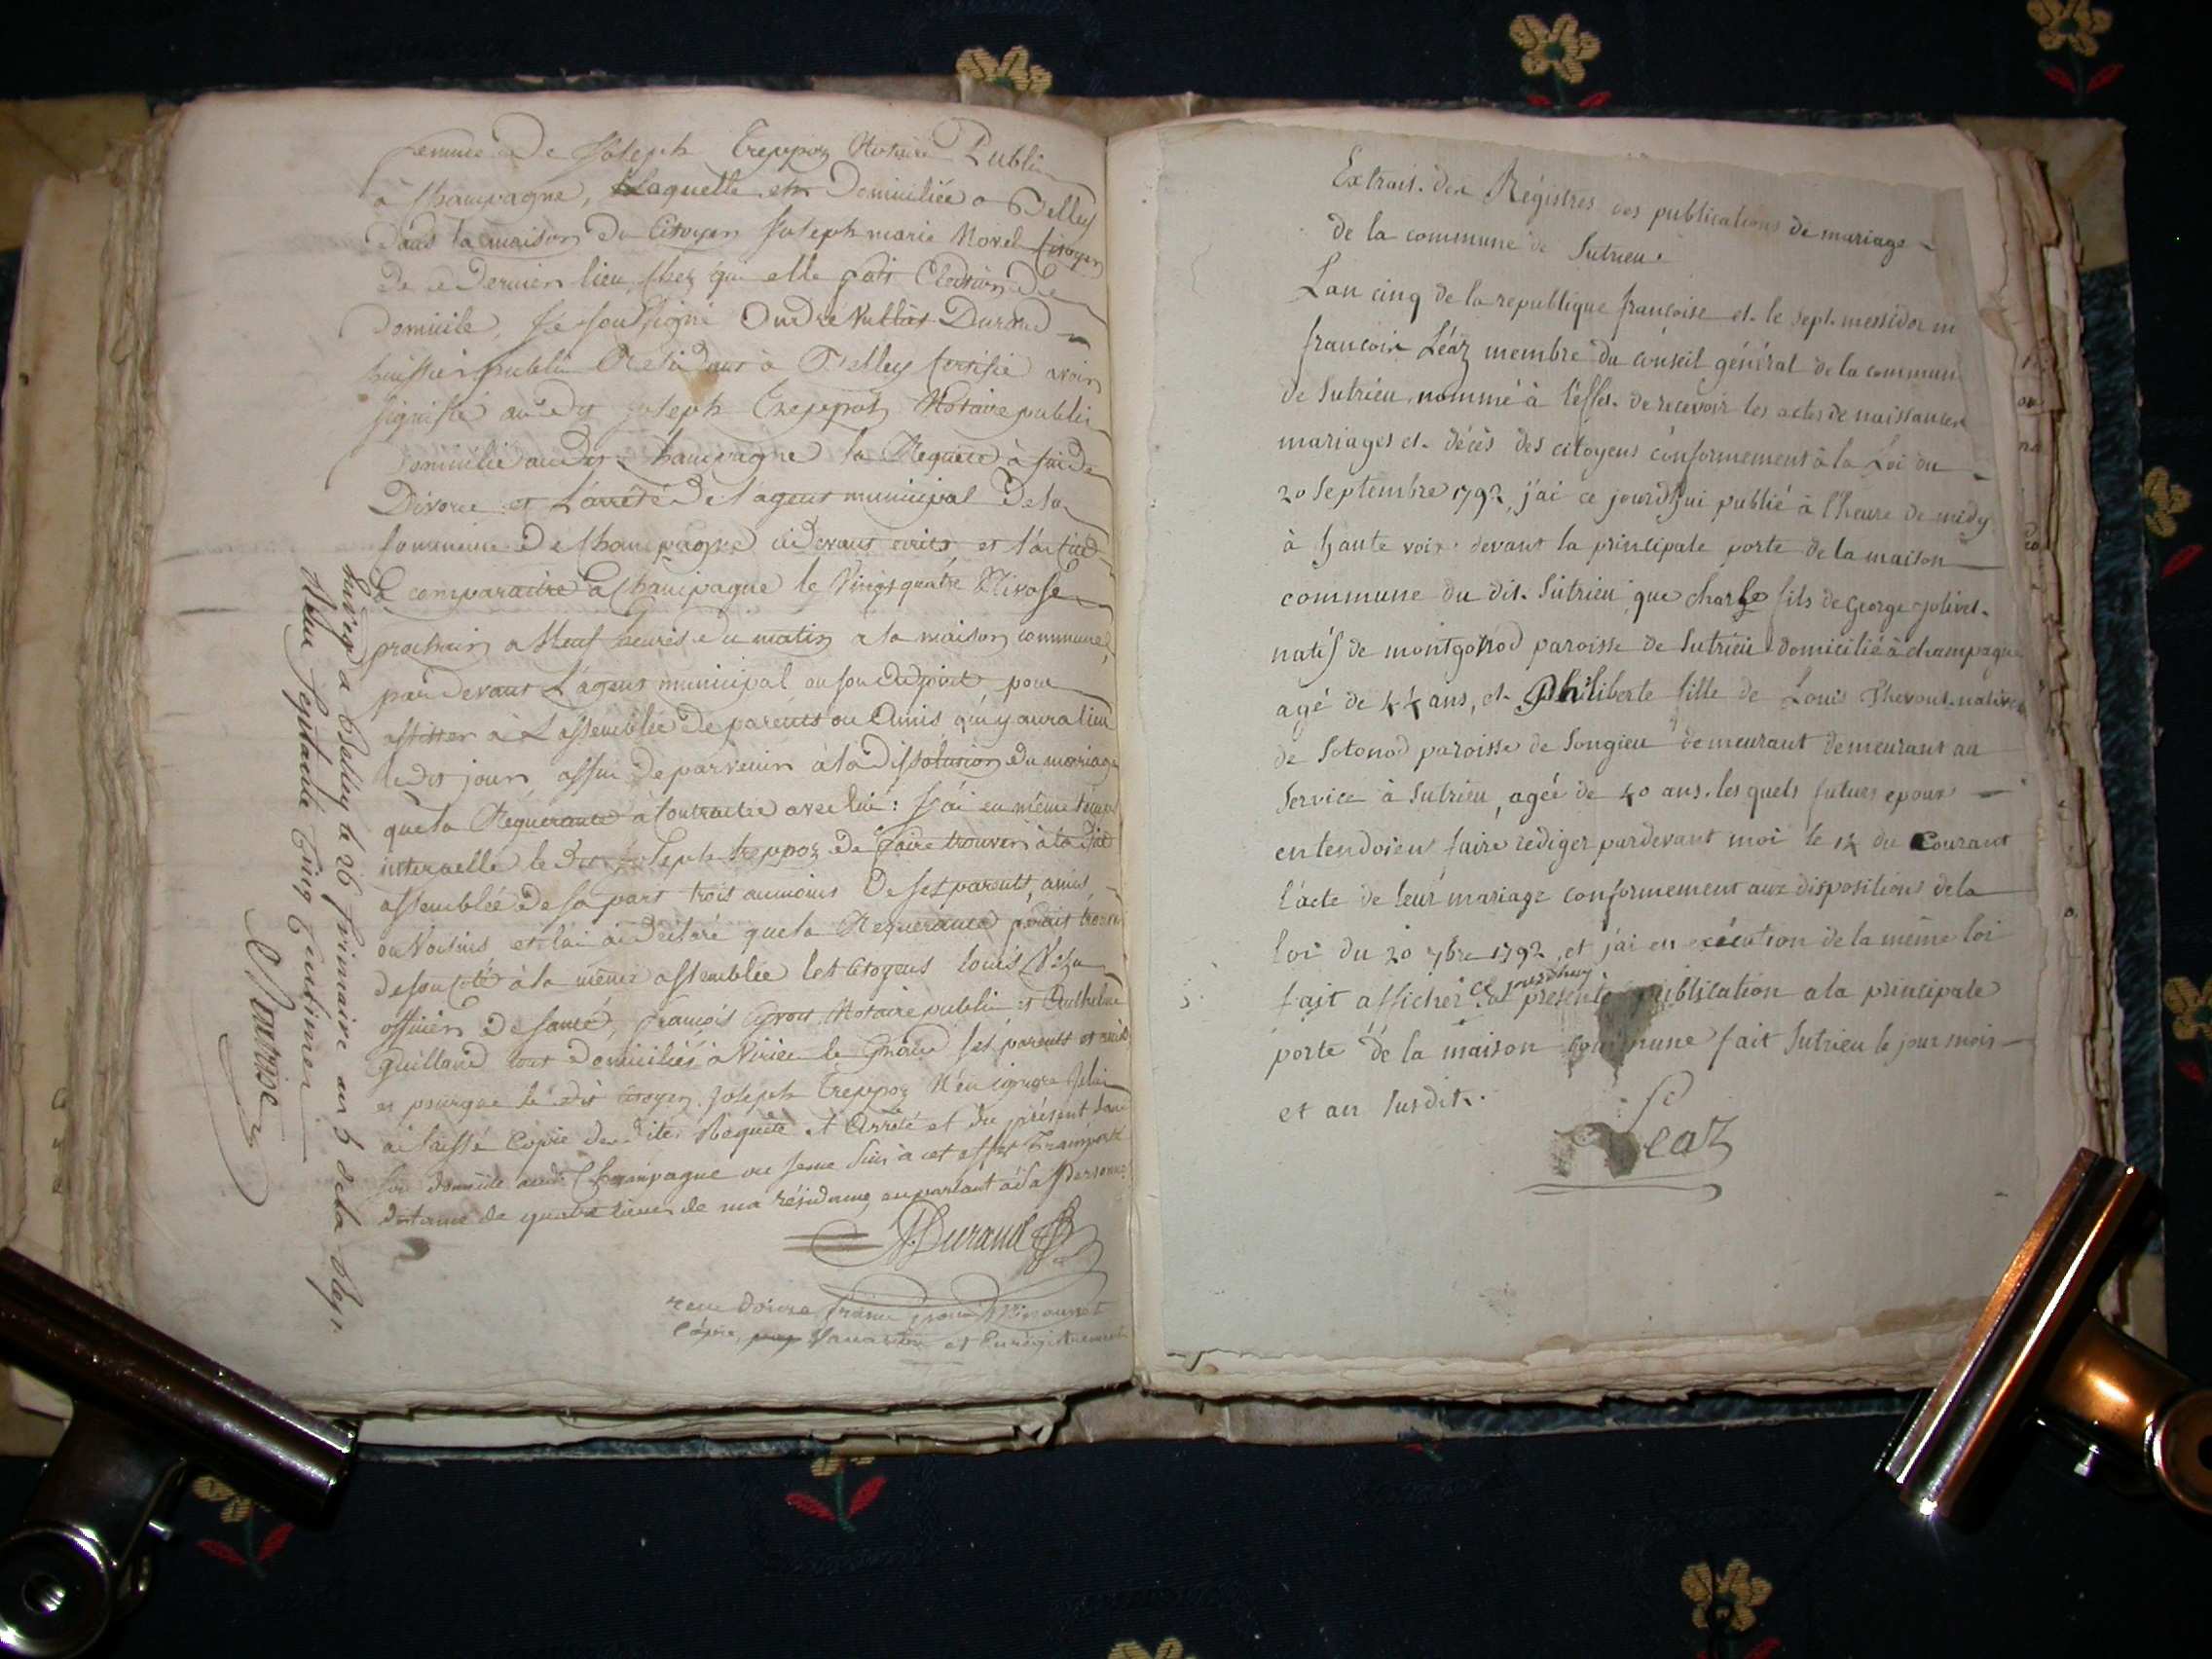 femme De Joseph Treppoz Notaire Public
à Champagne, Laquelle est Domiciliée a Belley
Dans la maison du Citoyen Joseph marie Morel Citoyen
De ce Dernier lieu, chez qui elle fait Election de
Domicile, Je soussigné André Durand
huissier public Residant à Belley Certifie avoir
signifié audit Joseph Treppoz Notaire public
Domicilié audit Champagne la Requete à fin de
Divorce et L'arrêté De l'agent municipal De la
Commune De Champagne cidevant écrits et l'ai cité
à comparaitre à Champagne le Vingt quatre Nivose
prochain a Neuf heures du matin a la maison commune
par devant L'agent municipal ou son adjoint, pour
assister à L'assemblée De parents ou Amis qui y aura lieu
le dit jour, affin De parvenir à la Dissolution du mariage
que la Requerante à Contractée avec lui : J'ai en même tems
interpellé le dit Joseph treppoz De faire trouver à la dite
assemblée De sa part trois aumoins De ses parents, amis,
ou Voisins et lui ai Déclaré que la Requerante feroit trouver
de son Coté à la même assemblée les Citoyens louis
officier De santé, françois Notaire public et Anthelme
Guilland tous Domiciliés à Virieu le Grand ses parents et amis
et pourque le dit Citoyen Joseph Treppoz N'en ignore Je lui
ai laissé Copie des dites Requete et Arrêté et du présent dans
son domicile audit Champagne ou Je me suis à cet effet Transporté
distance de quatre lieues de ma résidence, en parlant à sa Personne.
Durand
copie, et Enregistrement
à Belley le 26 frimaire an 5 de la Rep.
Reçu Soixante Cinq Centimes
Extrait des Régistres des publications de mariage
de la commune de Sutrieu.
L'an cinq de la republique françoise et le sept messidor moi
françois Léaz membre du conseil général de la commune
de Sutrieu, nommé à l'effet de recevoir les actes de naissances
mariages et décès des citoyens conformement à la Loi du
20 Septembre 1792, j'ai ce jourdhui publié à l'heure de midy
à haute voix devant la principale porte de la maison
commune du dit Sutrieu que charle fils de George Jolivet
natif de montgonod paroisse de Sutrieu domicilié à champagne
agé de 44 ans, et Philiberte fille de Louis Thevont native
de Sotonod paroisse de Songieu demeurant demeurant au
Service à Sutrieu, agée de 40 ans. les quels futurs epoux
entendoient faire rediger pardevant moi le 14 du Courant
l'acte de leur mariage conformement aux dispositions de la
loi du 20 7bre 1792, et j'ai en execution de la même loi
ce jourdhuy
fait afficher la presente publication a la principale
porte de la maison commune fait Sutrieu le jour mois
et an susdit.
Leaz